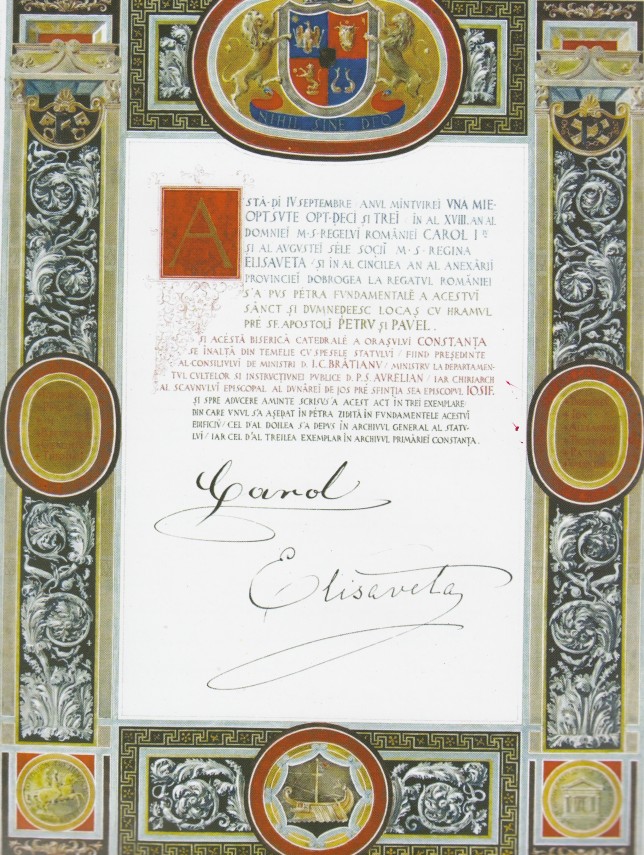 NIHIL SINE DEO
ASTĂ-DI IV SEPTEMBRE ANVL MÎNTVIREI VNA MIE-
OPTSVTE OPT-DECI SI TREI ÎN AL XVIII. AN AL
DOMNIEI M·S·REGELVI ROMÂNIEI CAROL I
SI AL AVGVSTEI SÉLE SOCIĬ M·S·REGINA
ELISAVETA / SI ÎN AL CINCILEA AN AL ANEXĂRIĬ
PROVINCIEI DOBROGEA LA REGATVL ROMÂNIEI
S'A PVS PÉTRA FVNDAMENTALE A ACESTVĬ
SÂNCT ȘI DVMNEDEESC LOCAȘ CV HRAMVL
PRÉ SF. APOSTOLĬ PETRV ȘI PAVEL.
ȘI ACÉSTĂ BISERICĂ CATEDRALĔ A ORAȘVLVĬ CONSTANȚA
SE ÎNALȚĂ DIN TEMELIE CV SPESELE STATVLVĬ / FIIND PREȘEDINTE
AL CONSILIVLVĬ DE MINISTRI D. I.C. BRĂTIANV / MINISTRV LA DEPARTAMEN-
TVL CVLTELOR SI INSTRVCȚIVNEĬ PVBLICE D. P.S. AVRELIAN / IAR CHIRIARCH
AL SCAVNVLVĬ EPISCOPAL AL DVNĂREĬ DE JOS PRÉ SFINȚIA SEA EPISCOPVL IOSIF.
ȘI SPRE ADVCERE AMINTE SCRISVS'A ACEST ACT ÎN TREI EXEMPLARE
DIN CARE VNVL S'A AȘEDAT ÎN PÉTRA ZIDITĂ ÎN FVNDAMENTELE ACESTVĬ
EDIFICIŬ / CEL D'AL DOILEA S'A DEPVS ÎN ARCHIVVL GENERAL AL STATV-
LVĬ / IAR CEL D'AL TREILEA EXEMPLAR ÎN ARCHIVVL PRIMĂRIEĬ CONSTANȚA.
Carol
Elisaveta